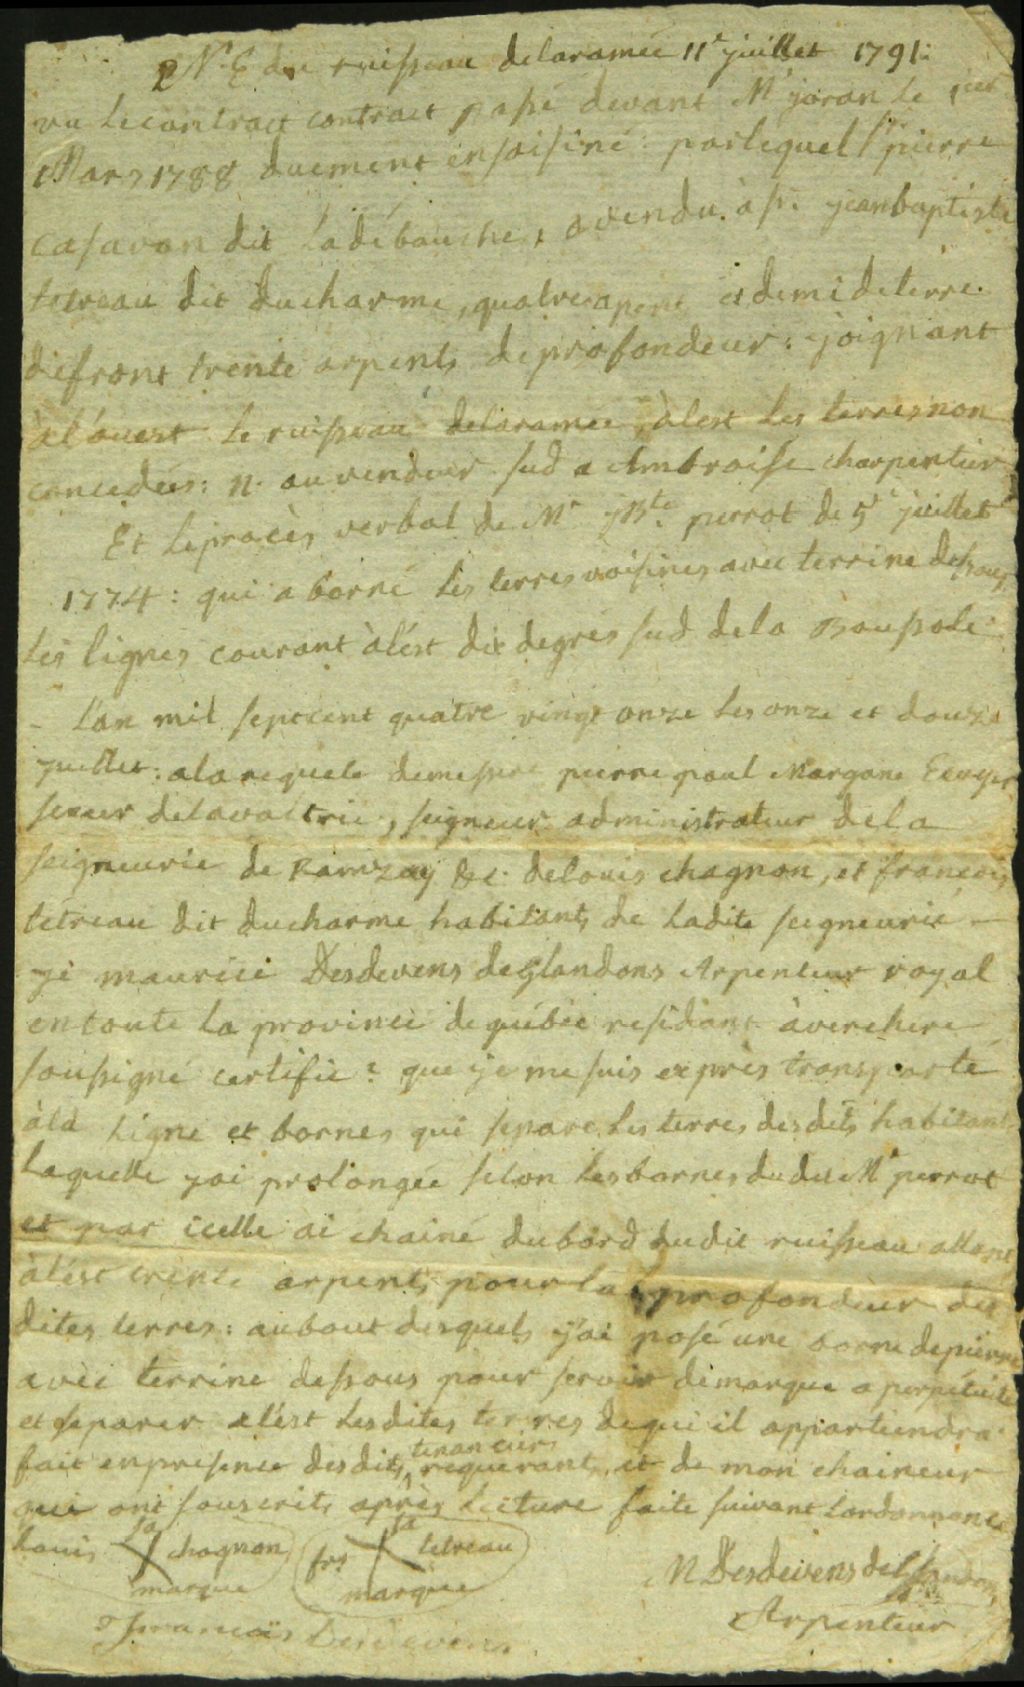 2 N. E du ruisseau delaramée 11e juillet 1791:
vu lecontract contract passé devant Mr jaran le 1ier
Mars 1788 duement ensaisiné: parlequel sr pierre
casavan dit Ladébauche, a vendu. à sr. jeanbaptiste
tetreau dit ducharme, quatre apent et demi deterre.
defront trente arpents deprofondeur: joignant
àl'ouest le ruisseau delaramée, àlest les terres non
concedées: n. auvendeur sud a Ambroise charpentier
Et leprocès verbal de Mr jBte perrot de 5e juillet
1774: qui a borné les terres voisines avec terrine dessous
les lignes courant àlést dix degrés sud dela Boussole
- L'an mil septcent quatre vingt onze les onze et douze
juillet: alarequete demessire pierre paul Margane Ecuyer
sieur delavaltrie, seigneur administrateur dela
seigneurie de Ramzay &c. delouis chagnon, et françois
tétreau dit ducharme habitants de Ladite seigneurie -
je maurice Desdevens deGlandons Arpenteur royal
entoute la province dequébec residant àverchere
soussigné certifie: que je me suis exprès transporté
àla Ligne et bornes qui separe les terres desdits habitants
laquelle jai prolongée selon lesbornes dudit Mr perrot
et par icelle ai chainé dubord dudit ruisseau allant
àlést trente arpents pour la profondeur des
dites terres: aubout desquels j'ai posé une borne depierre
avèc terrine dessous pour servir demarque a perpétuité
et separer alést Lesdites terres dequi il appartiendra.
fait enpresence desdits tenanciers requerants, et de mon chaineur
qui ont souscrits après Lecture faite suivant Lordonnance
Louis sa chagnon frs sa tetreau
marque marque
M Desdevens deGlandons
Arpenteur
François Desdevens